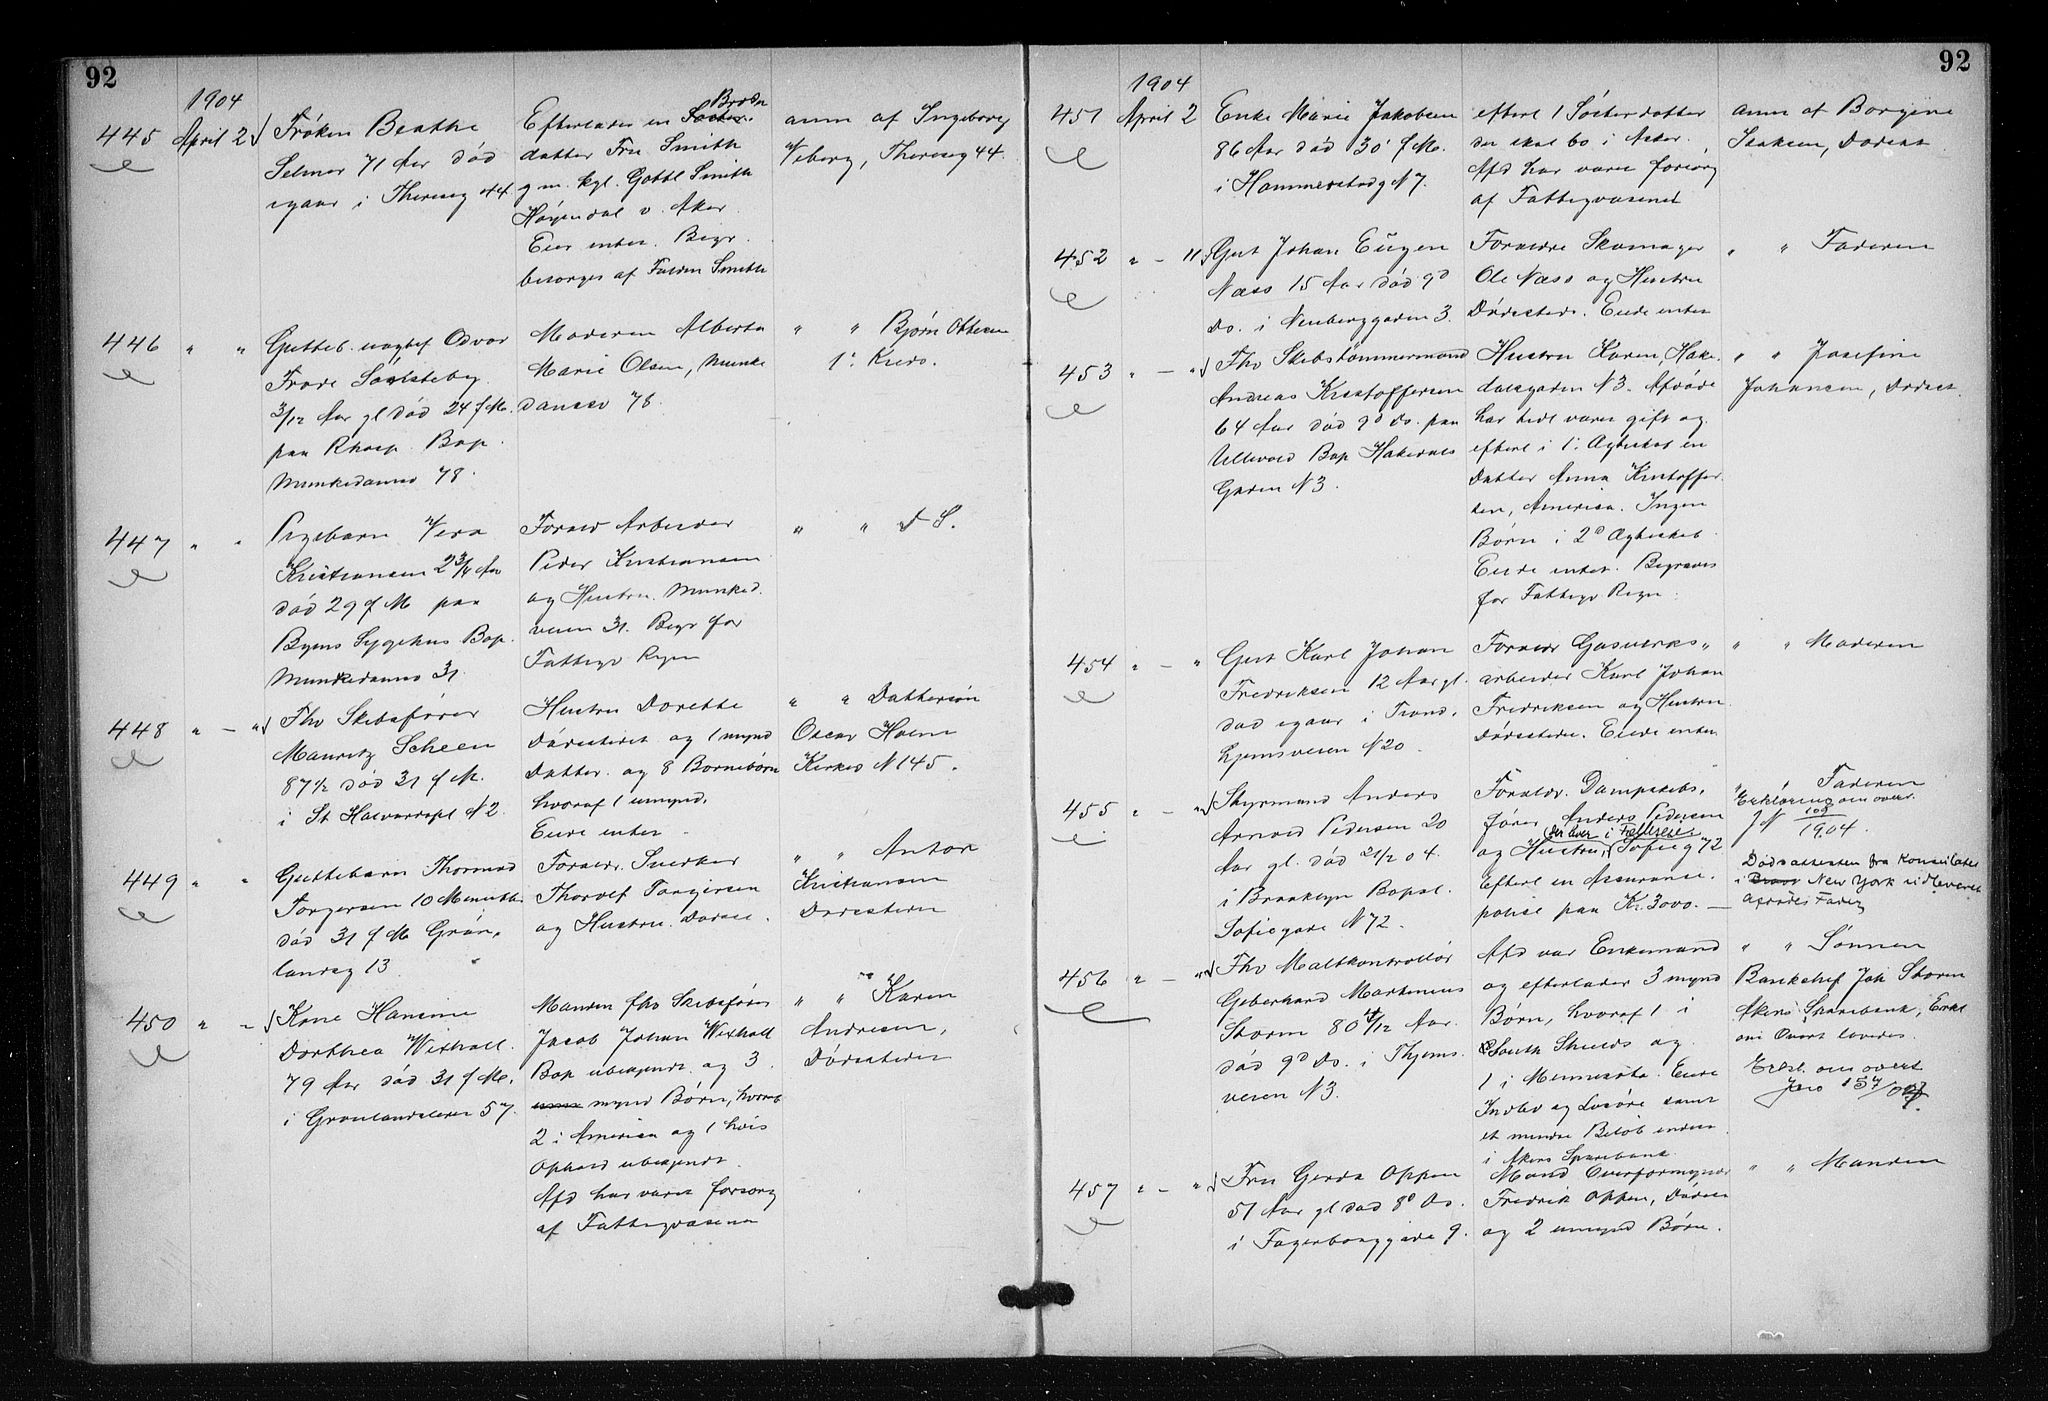 92
1904
445 April 2 Frøken Beathe
Selmer 71 Aar død
igaar i Thereseg 44
Efterlader en Broder
datter Fru Smith
g m. kgl. Gottl Smith
Høyendal v. Aker.
Eier intet. Begr.
besorges af Smith
anm af Ingeborg
Viberg, Thereseg 44.
446 " " Gutteb. uægtef Odvar
Frode
3/12 Aar gl død 24 f M.
paa Rhosp. Bop.
Munkedamsv 78.
Moderen Alberta
Marie Olsen, Munke
damsv 78.
" " Bjørn Ottesen
1ste Kreds.
447 " " Pigebarn Vera
Kristiansen 2 3/4 Aar
død 29 f M paa
Byens Sygehus Bop.
Munkedamsv 31.
Forældr Arbeider
Peder Kristiansen
og Hustru. Munked.
veien 31. Begr for
Fattigv Regn
" " d S.
448 " - " Fhv Skibsfører
Mauritz Scheen
87 1/2 død 31 f M.
i St Halvardspl N 2
Hustru Dorette
Dødsstedet og 1 mynd
Datter. og 8 Børnebørn
hvoraf 1 umynd.
Eiede intet.
" " Dattersøn
Oscar Holm
Kirkev N 145.
449 " " Guttebarn Thormod
Torgersen 10 Minutter
død 31 f M Grøn.
landsg 13.
Forældr. Snedker
Thorolf Torgersen
og Hustru. Dødsst.
" " Anton
Kristiansen
Dødsstedet
450 " " Kone Hansine
Dorthea Wixholl.
79 Aar død 31 f M.
i Grønlandsleret 57.
Manden fhv Skibsfører
Jacob Johan Wixholl
Bop ubekjendt. og 3
mynd Børn, hvoraf
2 i Amerika og 1 hvis
Ophold ubekjendt.
Afd har været forsørg
af Fattigvæsenet
" " Karen
Andresen,
Dødsstedet
92
1904
451 April 2 Enke Marie Jakobsen
86 Aar død 30 f M.
i Hammerstadg N 7.
efterl 1 Søsterdatter
der skal bo i Asker.
Afd har været forsørg
af Fattigvæsenet
anm af Borgine
Isaksen, Dødsst
452 " - 11 Gut Johan Eugen
Næss 15 Aar død 9d
Ds. i Neuberggaden 3.
Forældre Skomager
Ole Næss og Hustru
Dødsstedet. Eiede intet
" " Faderen
453 " - " Fhv Skibstømmermand
Andreas Kristoffersen
64 Aar død 9d Ds. paa
Ullevold Bop Hakedals
Gaden N 3.
Hustru Karen, Hake.
dalsgaden N 3. Afdøde
har tidl været gift og
efterl i 1: Ægteskab en
Datter Anna Kristoffer
sen, Amerika. Ingen
Børn i 2d Ægteskab.
Eiede intet. Begraves
for Fattigv Regn.
" " Josefine
Johansen, Dødsst.
454 " - " Gut Karl Johan
Fredriksen 12 Aar gl.
død igaar i Trond.
hjemsveien N 20.
Forældr Gasværks"
arbeider Karl Johan
Fredriksen og Hustru
Dødsstedet. Eiede intet.
" " Moderen
455 " - " Styrmand Anders
Arnvid Pedersen 20
Aar gl. død 21/2 04.
i Brooklyn Bopæl.
Sofiegade N 72.
Forældr. Dampskibs.
fører Anders Pedersen
der lever i Fælleseie
og Hustru, Sofieg 72
Efterl en Assurance.
polise paa Kr. 3000.—
" Faderen
Erklæring om overt.
J N 108/1904.
Dødsattesten fra Konsulatet
i New York udleveret
afdødes Fader
456 " - " Fhv Maltkontrollør
Geberhard Martinius
Storm 80 4/12 Aar.
død 9d Ds. i Thjems.
veien N 3.
Afd var Enkemand
og efterlader 3 mynd
Børn, hvoraf 1 i
South Shields og
1 i Minnesota. Eiede
Indbo og Løsøre samt
et mindre Beløb indsat
i Akers Sparebank.
" " Sønnen
Bankchef Joh Storm
Akers Sparebank, Erkl
om Overt loveres.
Erkl. om overt
Jno 157/04
457 " - " Fru Gerda Oppen
51 Aar gl død 8d Ds.
i Fagerborggade 9.
Mand Overformynder
Fredrik Oppen, Dødsst
og 2 umynd Børn.
" " Manden